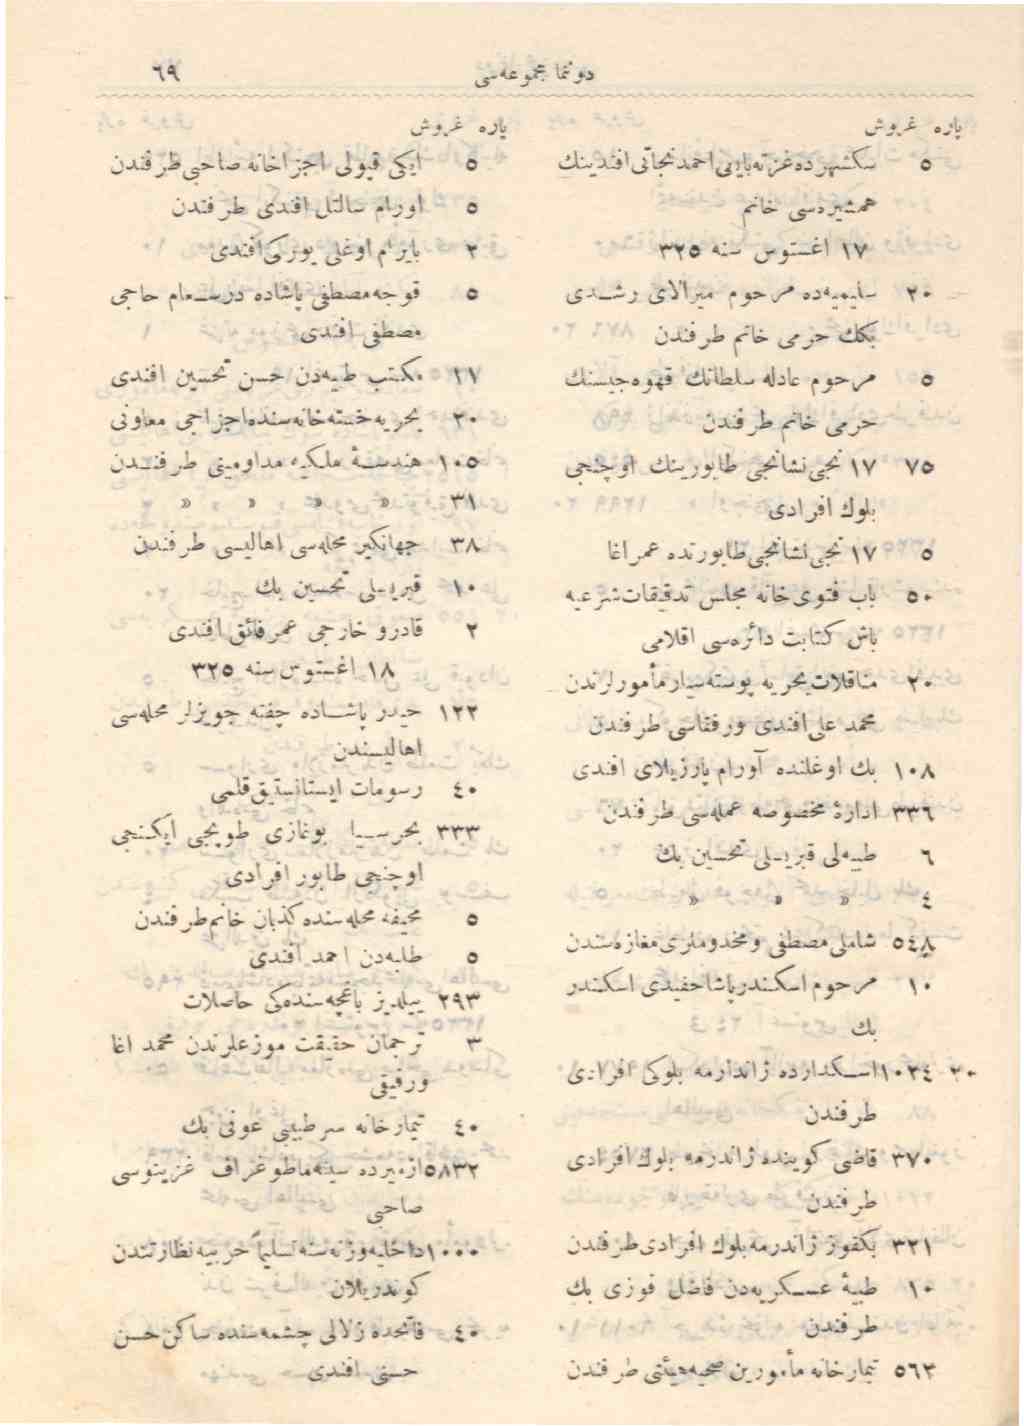 دونما مجموعه‌سی ٦٩
پاره غروش
٥ سكشهرده غزته بايی احمد نجاتی افندينك
همشيره‌سی خانم
١٧ اغستوس سنه ٣٢٥
٢٠ سليميه‌ده مرحوم ميرالای رشدی
بكك حرمی خانم طرفندن
٥ مرحوم عادله سلطانك قهوه‌جيسنك
حرمی خانم طرفندن
٧٥ ١٧ نجی نشانجی طابورينك اوچنجی
بلوك افرادی
٥ ١٧ نجی نشانجی طابورنده عمر اغا
٥٠ باب فتوی‌خانه مجلس تدقيقات شرعيه
باش كتابت دائره‌سی اقلامی
٢٠ مناقلات بحريه پوسته سيار مأمورلرندن
محمد علی افندی ورفقاسی طرفندن
١٠٨ بك اوغلنده آورام پارزيلای افندی
٣٣٦ ادارۀ مخصوصه عمله‌سی طرفندن
٦ طبيه‌لی قبريسلی تحسين بك
٤ » » »
٥٤٨ شاملی مصطفی ومخدوملری مغازه‌سندن
١٠ مرحوم اسكندر پاشا حفيدی اسكندر
بك
٢٠ ١٠٣٤ اسكدارده ژاندارمه بلوكی افرادی
طرفندن
٣٧٠ قاضی كوينده ژاندرمه بلوك افرادی
طرفندن
٣٢١ بكقوز ژاندرمه بلوك افرادی طرفندن
١٠ طبيۀ عسكريه‌دن فاضل فوزی بك
طرفندن
٥٦٣ تيمارخانه مأمورين صحيه هيئتی طرفندن
پاره غروش
٥ ايكی قپولی اجزاخانه صاحبی طرفندن
٥ اورام سالتل افندی طرفندن
٢ بايرام اوغلی يوركی افندی
٥ قوجه مصطفی پاشاده درسعام حاجی
مصطفی افندی
١١ مكتب طبيه‌دن حسن تحسين افندی
٢٠ بحريه خسته‌خانه‌سنده اجزاجی معاونی
١٠٥ هندسۀ ملكيه مداومينی طرفندن
٣١ » » » »
٣٨ جهانكير محله‌سی اهاليسی طرفندن
١٠ قبريسلی تحسين بك
٢ قادرو خارجی عمر فائق افندی
١٨ اغستوس سنه ٣٢٥
١٢٢ حيدر پاشاده چفته جويزلر محله‌سی
اهاليسندن
٤٠ رسومات ايستاتستيق قلمی
٣٣٣ بحر سياه بوغازی طوپجی ايكنجی
اوچنجی طابور افرادی
٥ محله‌سنده خانم طرفندن
٥ طلبه‌دن احمد افندی
٢٩٣ ييلديز باغچه‌سنده‌كی حاصلات
٣ ترجمان حقيقت موزعلرندن محمد اغا
ورفيقی
٤٠ تيمارخانه سرطبيبی عونی بك
٥٨٣٢ ازميرده سينه‌ماطوغراف غزينوسی
صاحبی
١٠٠٠ داخليه وزنه‌سنه تسليماً حربيه نظارتندن
كوندريلان
٤٠ فاتحده زلالی چشمه‌سنده ساكن حسن
حسنی افندی